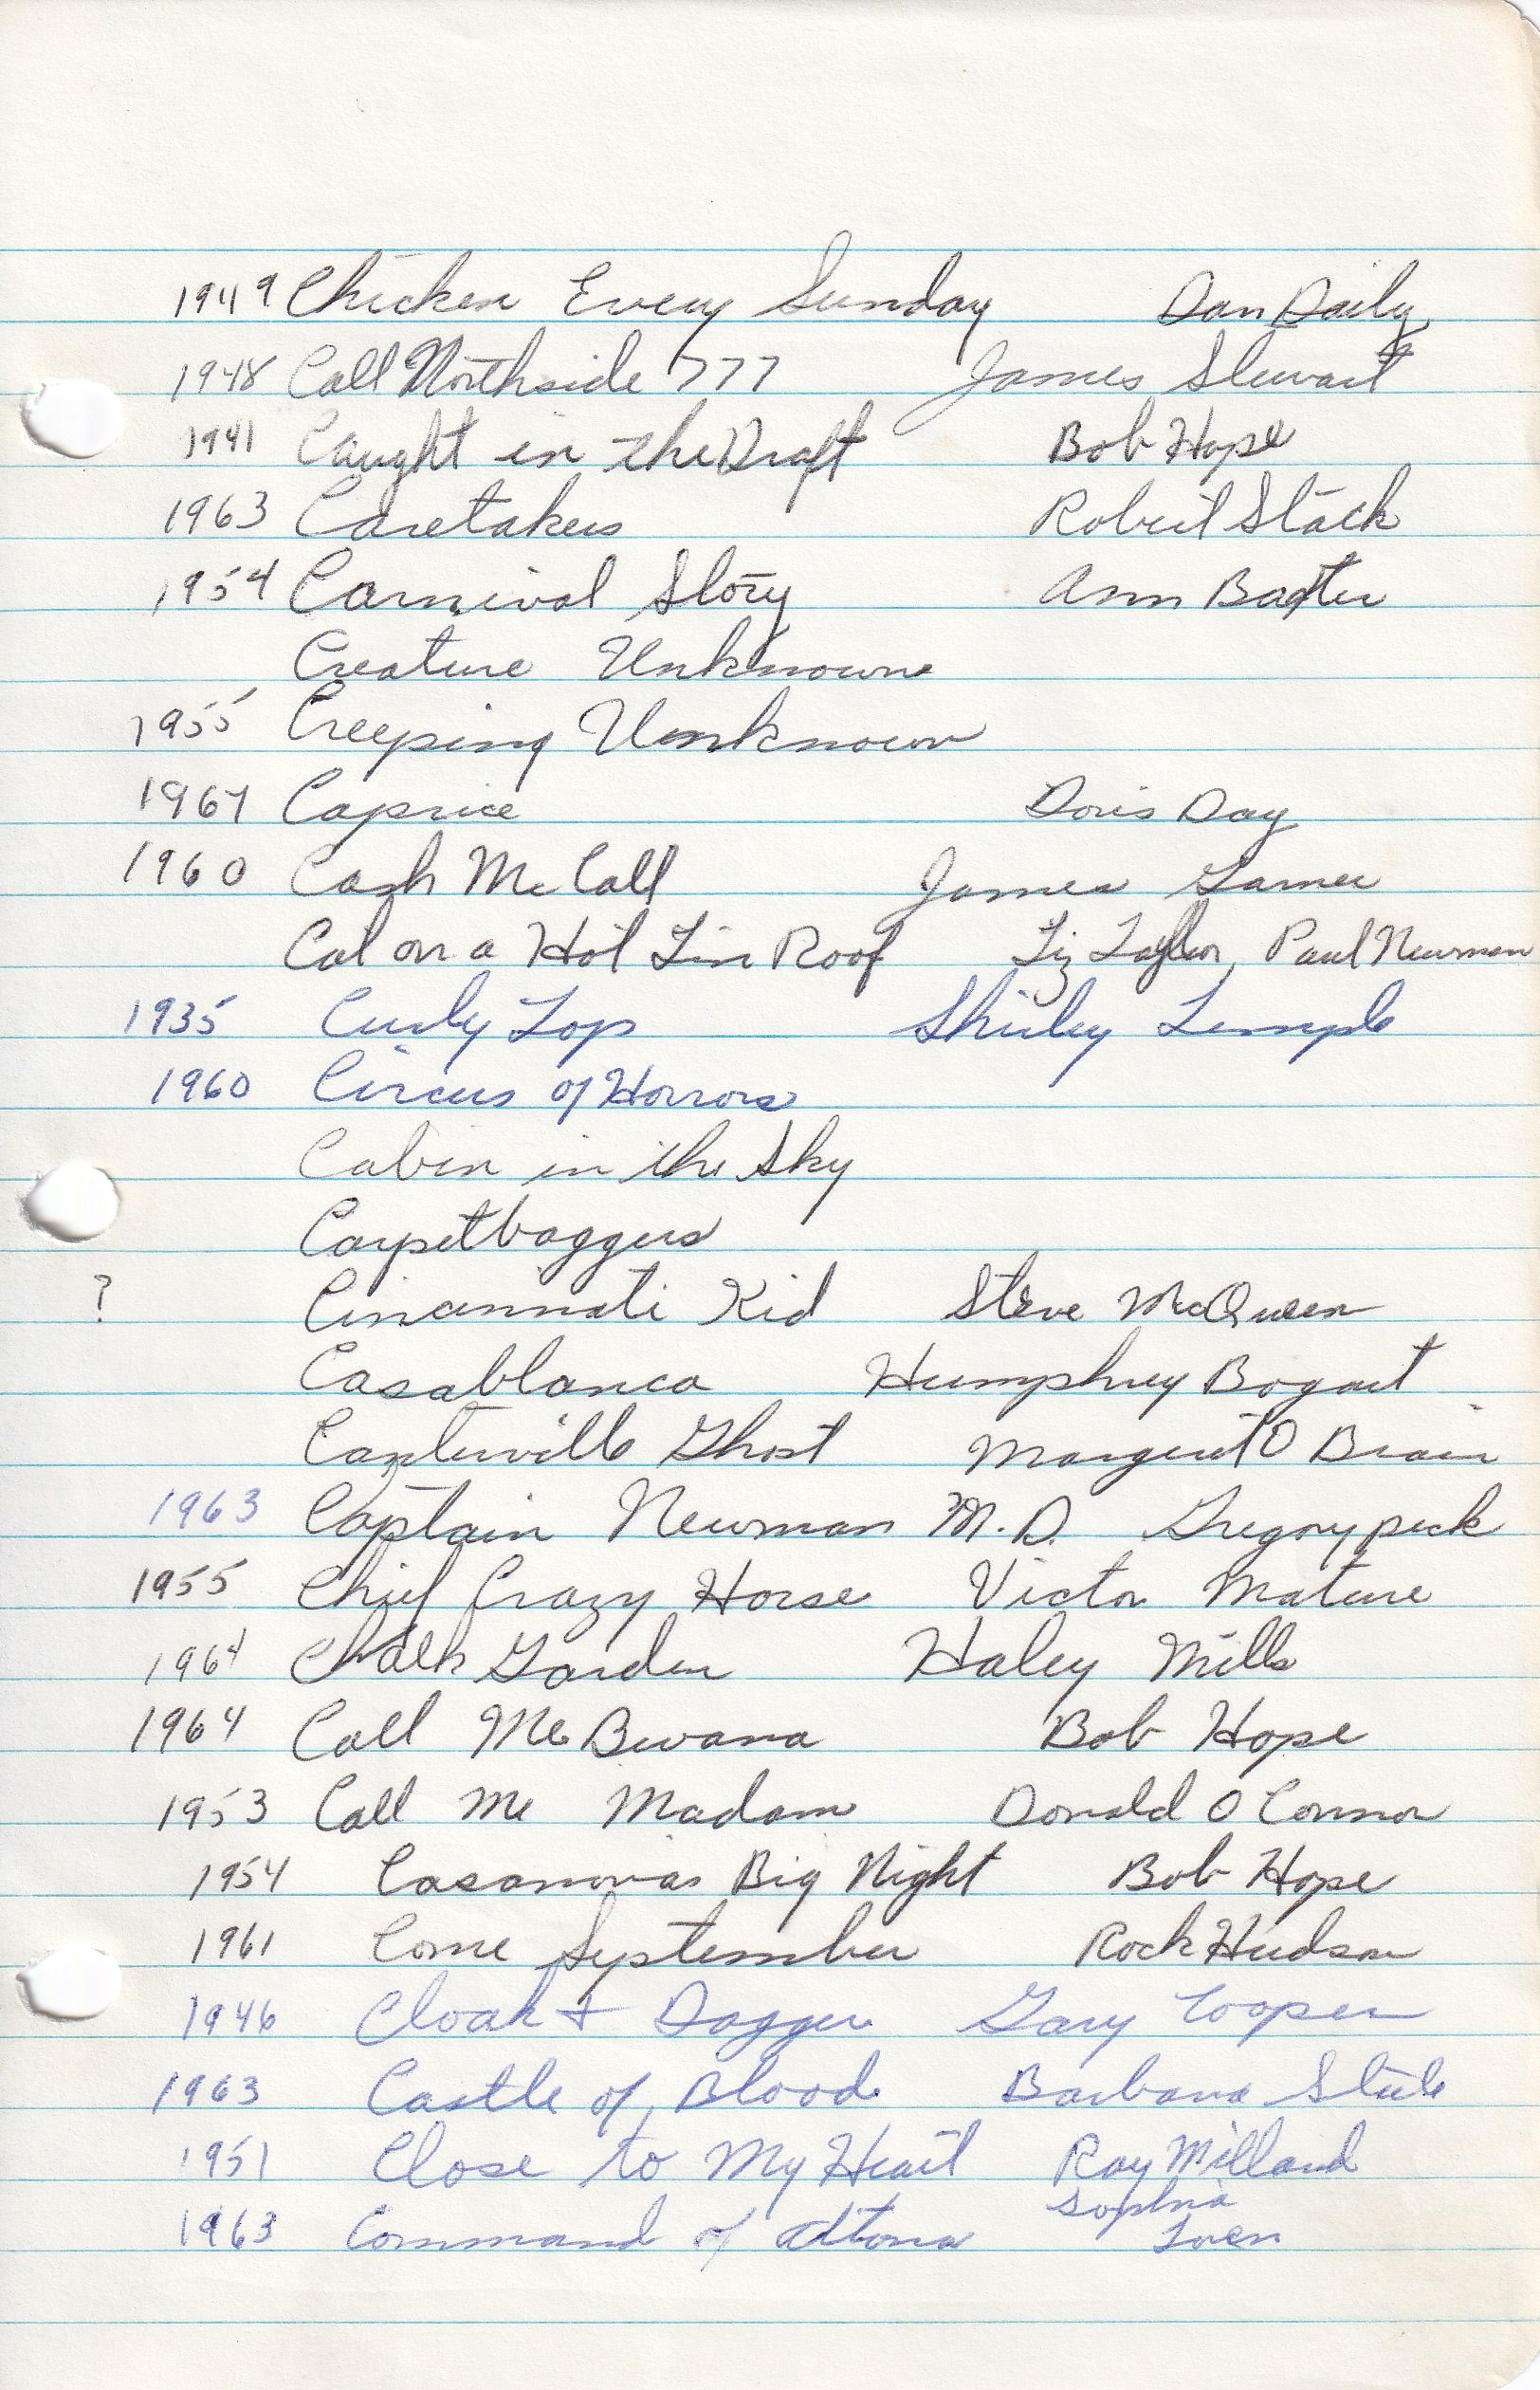 1949 Chicken Every Sunday Dan Daily
1948 Call Northside 777 James Stewart
1941 Caught in the Draft Bob Hope
1963 Caretakers Robert Stack
1954 Carnival Story Ann Baxter
Creature Unknowne
1955 Creeping Unknown
1967 Caprice Doris Day
1960 Cash McCall James Garner
Cat on a Hot Tin Roof Liz Taylor, Paul Newman
1935 Curly Top Shirley Temple
1960 Circus of Horrors
Cabin in the Sky
Carpetbaggers
? Cincinnati Kid Steve McQueen
Casablanca Humphrey Bogart
Canterville Ghost Margaret O Brain
1963 Captain Newman M.D. Gregory peck
1955 Chief Crazy Horse Victor Mature
1964 Chalk Garden Haley Mills
1964 Call Me Bwana Bob Hope
1953 Call Me Madam Donald O Connor
1954 Casanovas Big Night Bob Hope
1961 Come September Rock Hudson
1946 Cloak + Dagger Gary Cooper
1963 Castle of Blood Barbara Steele
1951 Close to My Heart Ray Milland
1963 Command of Altona Sophia
Loren